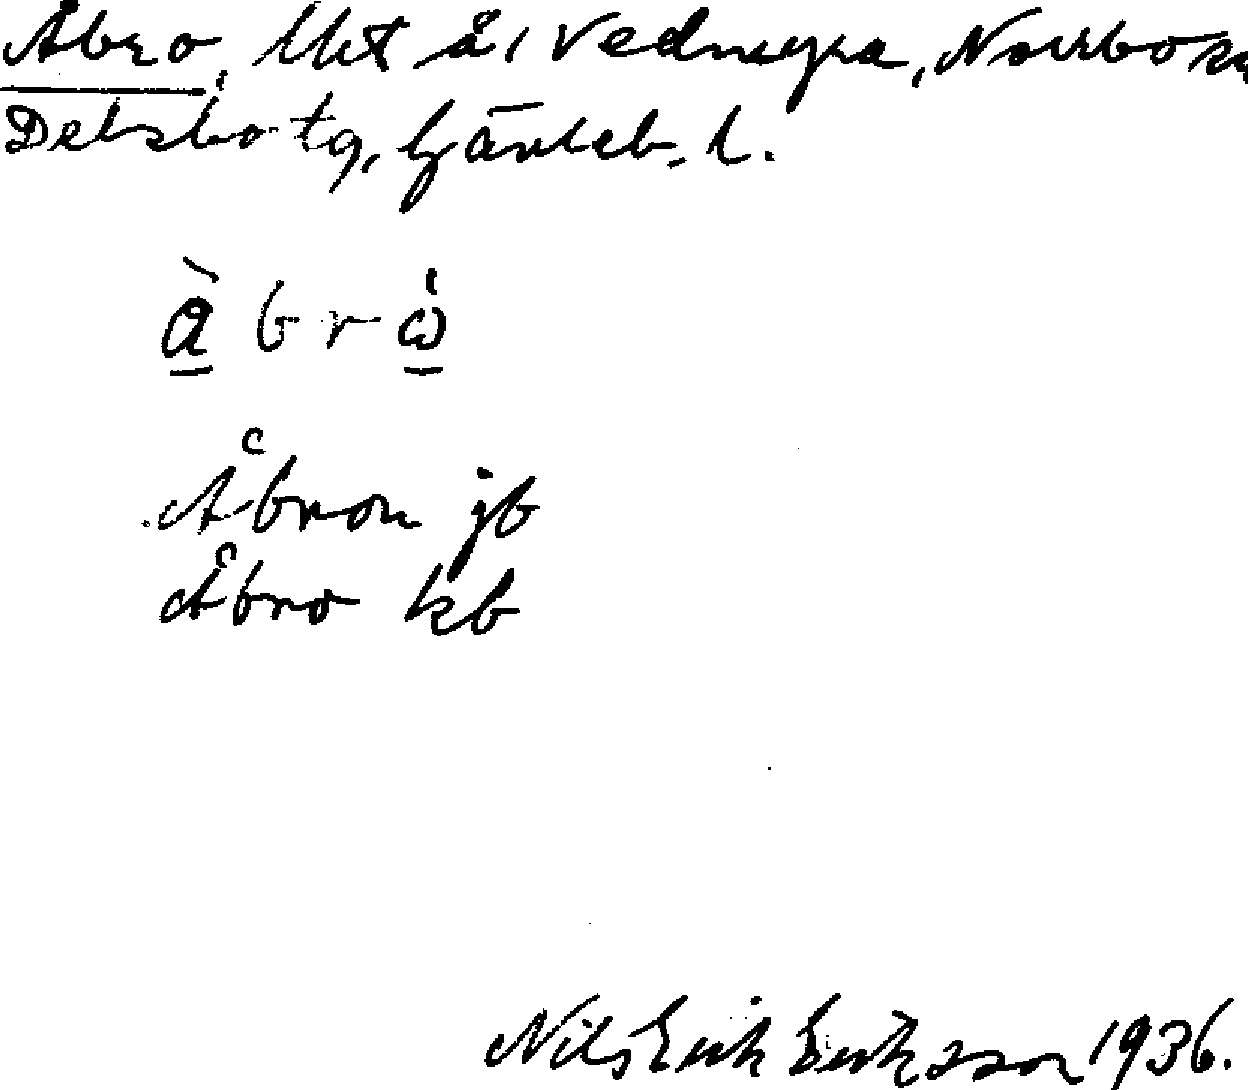 Åbro, Ukt å, Vedmyra, Norrbo sn
Delsbo tg, Gävleb. l.
å̀ b r ω̇
Åbron jb
Åbro kb
Nils Erik Eriksson 1936.